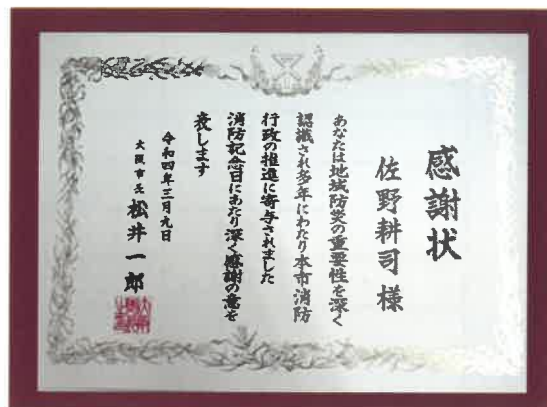 感謝状
佐野耕司様
あなたは地域防災の重要性を深く
認識され多年にわたり本市消防
行政の推進に寄与されました
消防記念日にあたり深く感謝の意を
表します
令和四年三月九日
大阪市長 松井一郎